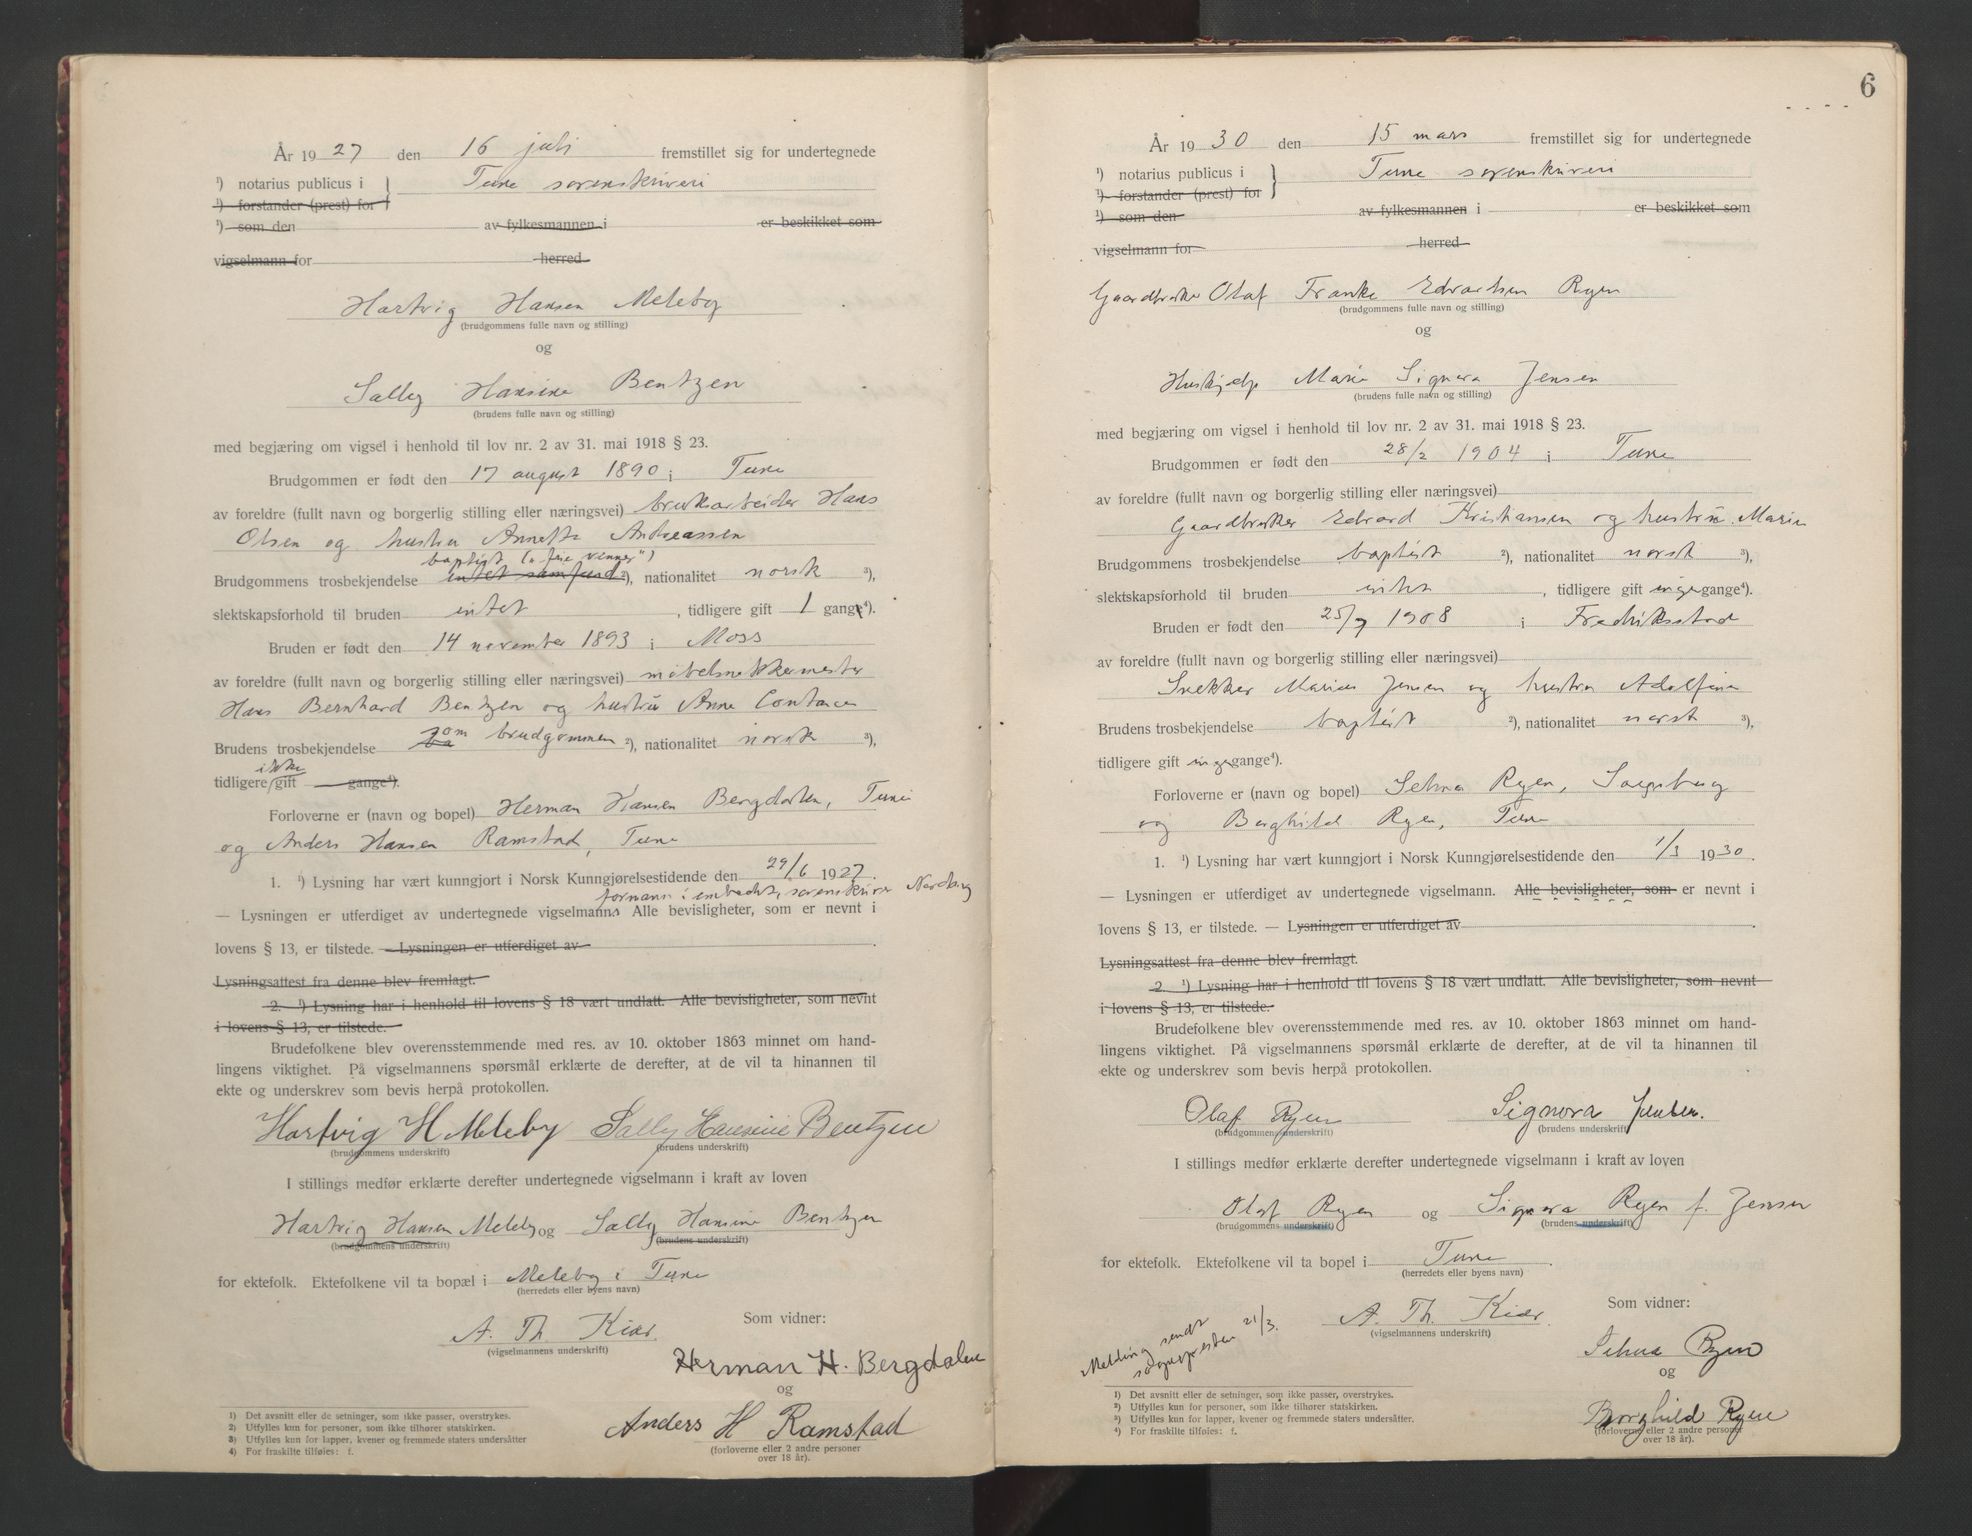 År 1927 den 16 juli fremstillet sig for undertegnede
¹) notarius publicus i } Tune sorenskriveri
¹) forstander (prest) for
¹) som den av fylkesmannen i er beskikket som
vigselmann for herred
Hartvig Hansen Meleby
(brudgommens fulle navn og stilling)
og
Sally Hansine Bentzen
(brudens fulle navn og stilling)
med begjæring om vigsel i henhold til lov nr. 2 av 31. mai 1918 § 23.
Brudgommen er født den 17 august 1890 i Tune
av foreldre (fullt navn og borgerlig stilling eller næringsvei) bruksarbeider Hans
Olsen og hustru Annette Andreassen
baptist („frie venner")
Brudgommens trosbekjendelse intet samfund ²), nationalitet norsk ³),
slektskapsforhold til bruden intet, tidligere gift 1 gange⁴).
Bruden er født den 14 november 1893 i Moss
av foreldre (fullt navn og borgerlig stilling eller næringsvei) møbelsnekkermester
Hans Bernhard Bentzen og hustru Anne Contance
Brudens trosbekjendelse som brudgommen ²), nationalitet norsk ³),
ikke
tidligere gift gange⁴).
Forloverne er (navn og bopel) Herman Hansen Bergdalen, Tune
og Anders Hansen Ramstad, Tune
1. ¹) Lysning har vært kunngjort i Norsk Kunngjørelsestidende den 29/6 1927.
formann i embedet, sorenskriver Nordbug
— Lysningen er utferdiget av undertegnede vigselmanns Alle bevisligheter, som er nevnt i
lovens § 13, er tilstede. — Lysningen er utferdiget av .
Lysningsattest fra denne blev fremlagt.
2. ¹) Lysning har i henhold til lovens § 18 vært undlatt. Alle bevisligheter, som nevnt
i lovens § 13, er tilstede.
Brudefolkene blev overensstemmende med res. av 10. oktober 1863 minnet om hand-
lingens viktighet. På vigselmannens spørsmål erklærte de derefter, at de vil ta hinannen til
ekte og underskrev som bevis herpå protokollen.
Hartvig H Meleby Sally Hansine Bentzen
(brudgommens underskrift) (brudens underskrift)
I stillings medfør erklærte derefter undertegnede vigselmann i kraft av loven
Hartvig Hansen Meleby og Sally Hansine Bentzen
(brudgommens underskrift) (brudens underskrift)
for ektefolk. Ektefolkene vil ta bopæl i Meleby i Tune
(herredets eller byens navn)
Som vidner:
A. Th. Kiær.
(vigselmannens underskrift)
Herman H. Bergdalen
og
Anders H Ramstad
(forloverne eller 2 andre personer
over 18 år).
1) Det avsnitt eller de setninger, som ikke passer, overstrykes.
2) Utfylles kun for personer, som ikke tilhører statskirken.
3) Utfylles kun for lapper, kvener og fremmede staters undersåtter
4) For fraskilte tilføies: f.
6
År 1930 den 15 mars fremstillet sig for undertegnede
¹) notarius publicus i } Tune sorenskriveri
¹) forstander (prest) for
¹) som den av fylkesmannen i er beskikket som
vigselmann for herred
Gaardbruker Olaf Franke Edvardsen Ryen
(brudgommens fulle navn og stilling)
og
Hushjelp Marie Signora Jensen
(brudens fulle navn og stilling)
med begjæring om vigsel i henhold til lov nr. 2 av 31. mai 1918 § 23.
Brudgommen er født den 28/2 1904 i Tune
av foreldre (fullt navn og borgerlig stilling eller næringsvei)
Gaardbruker Edvard Kristiansen og hustru Marie
Brudgommens trosbekjendelse baptist ²), nationalitet norsk ³),
slektskapsforhold til bruden intet, tidligere gift ingen gange⁴).
Bruden er født den 25/7 1908 i Fredriksstad
av foreldre (fullt navn og borgerlig stilling eller næringsvei)
Snekker Marius Jensen og hustru Adolfine
Brudens trosbekjendelse baptist ²), nationalitet norsk ³),
tidligere gift ingen gange⁴).
Forloverne er (navn og bopel) Selma Ryen, Sarpsborg
og Borghild Ryen, Tune
1. ¹) Lysning har vært kunngjort i Norsk Kunngjørelsestidende den 1/3 1930.
— Lysningen er utferdiget av undertegnede vigselmann. Alle bevisligheter, som er nevnt i
lovens § 13, er tilstede. — Lysningen er utferdiget av .
Lysningsattest fra denne blev fremlagt.
2. ¹) Lysning har i henhold til lovens § 18 vært undlatt. Alle bevisligheter, som nevnt
i lovens § 13, er tilstede.
Brudefolkene blev overensstemmende med res. av 10. oktober 1863 minnet om hand-
lingens viktighet. På vigselmannens spørsmål erklærte de derefter, at de vil ta hinannen til
ekte og underskrev som bevis herpå protokollen.
Olaf Ryen Signora Jensen.
(brudgommens underskrift) (brudens underskrift)
I stillings medfør erklærte derefter undertegnede vigselmann i kraft av loven
Olaf Ryen og Signora Ryen f. Jensen
(brudgommens underskrift) (brudens underskrift)
for ektefolk. Ektefolkene vil ta bopel i Tune.
(herredets eller byens navn)
Som vidner:
A. Th. Kiær.
(vigselmannens underskrift)
Melding sendt
sognepresten 21/3.
Selma Ryen
og
Borghild Ryen
(forloverne eller 2 andre personer
over 18 år).
1) Det avsnitt eller de setninger, som ikke passer, overstrykes.
2) Utfylles kun for personer, som ikke tilhører statskirken.
3) Utfylles kun for lapper, kvener og fremmede staters undersåtter.
4) For fraskilte tilføies: f.